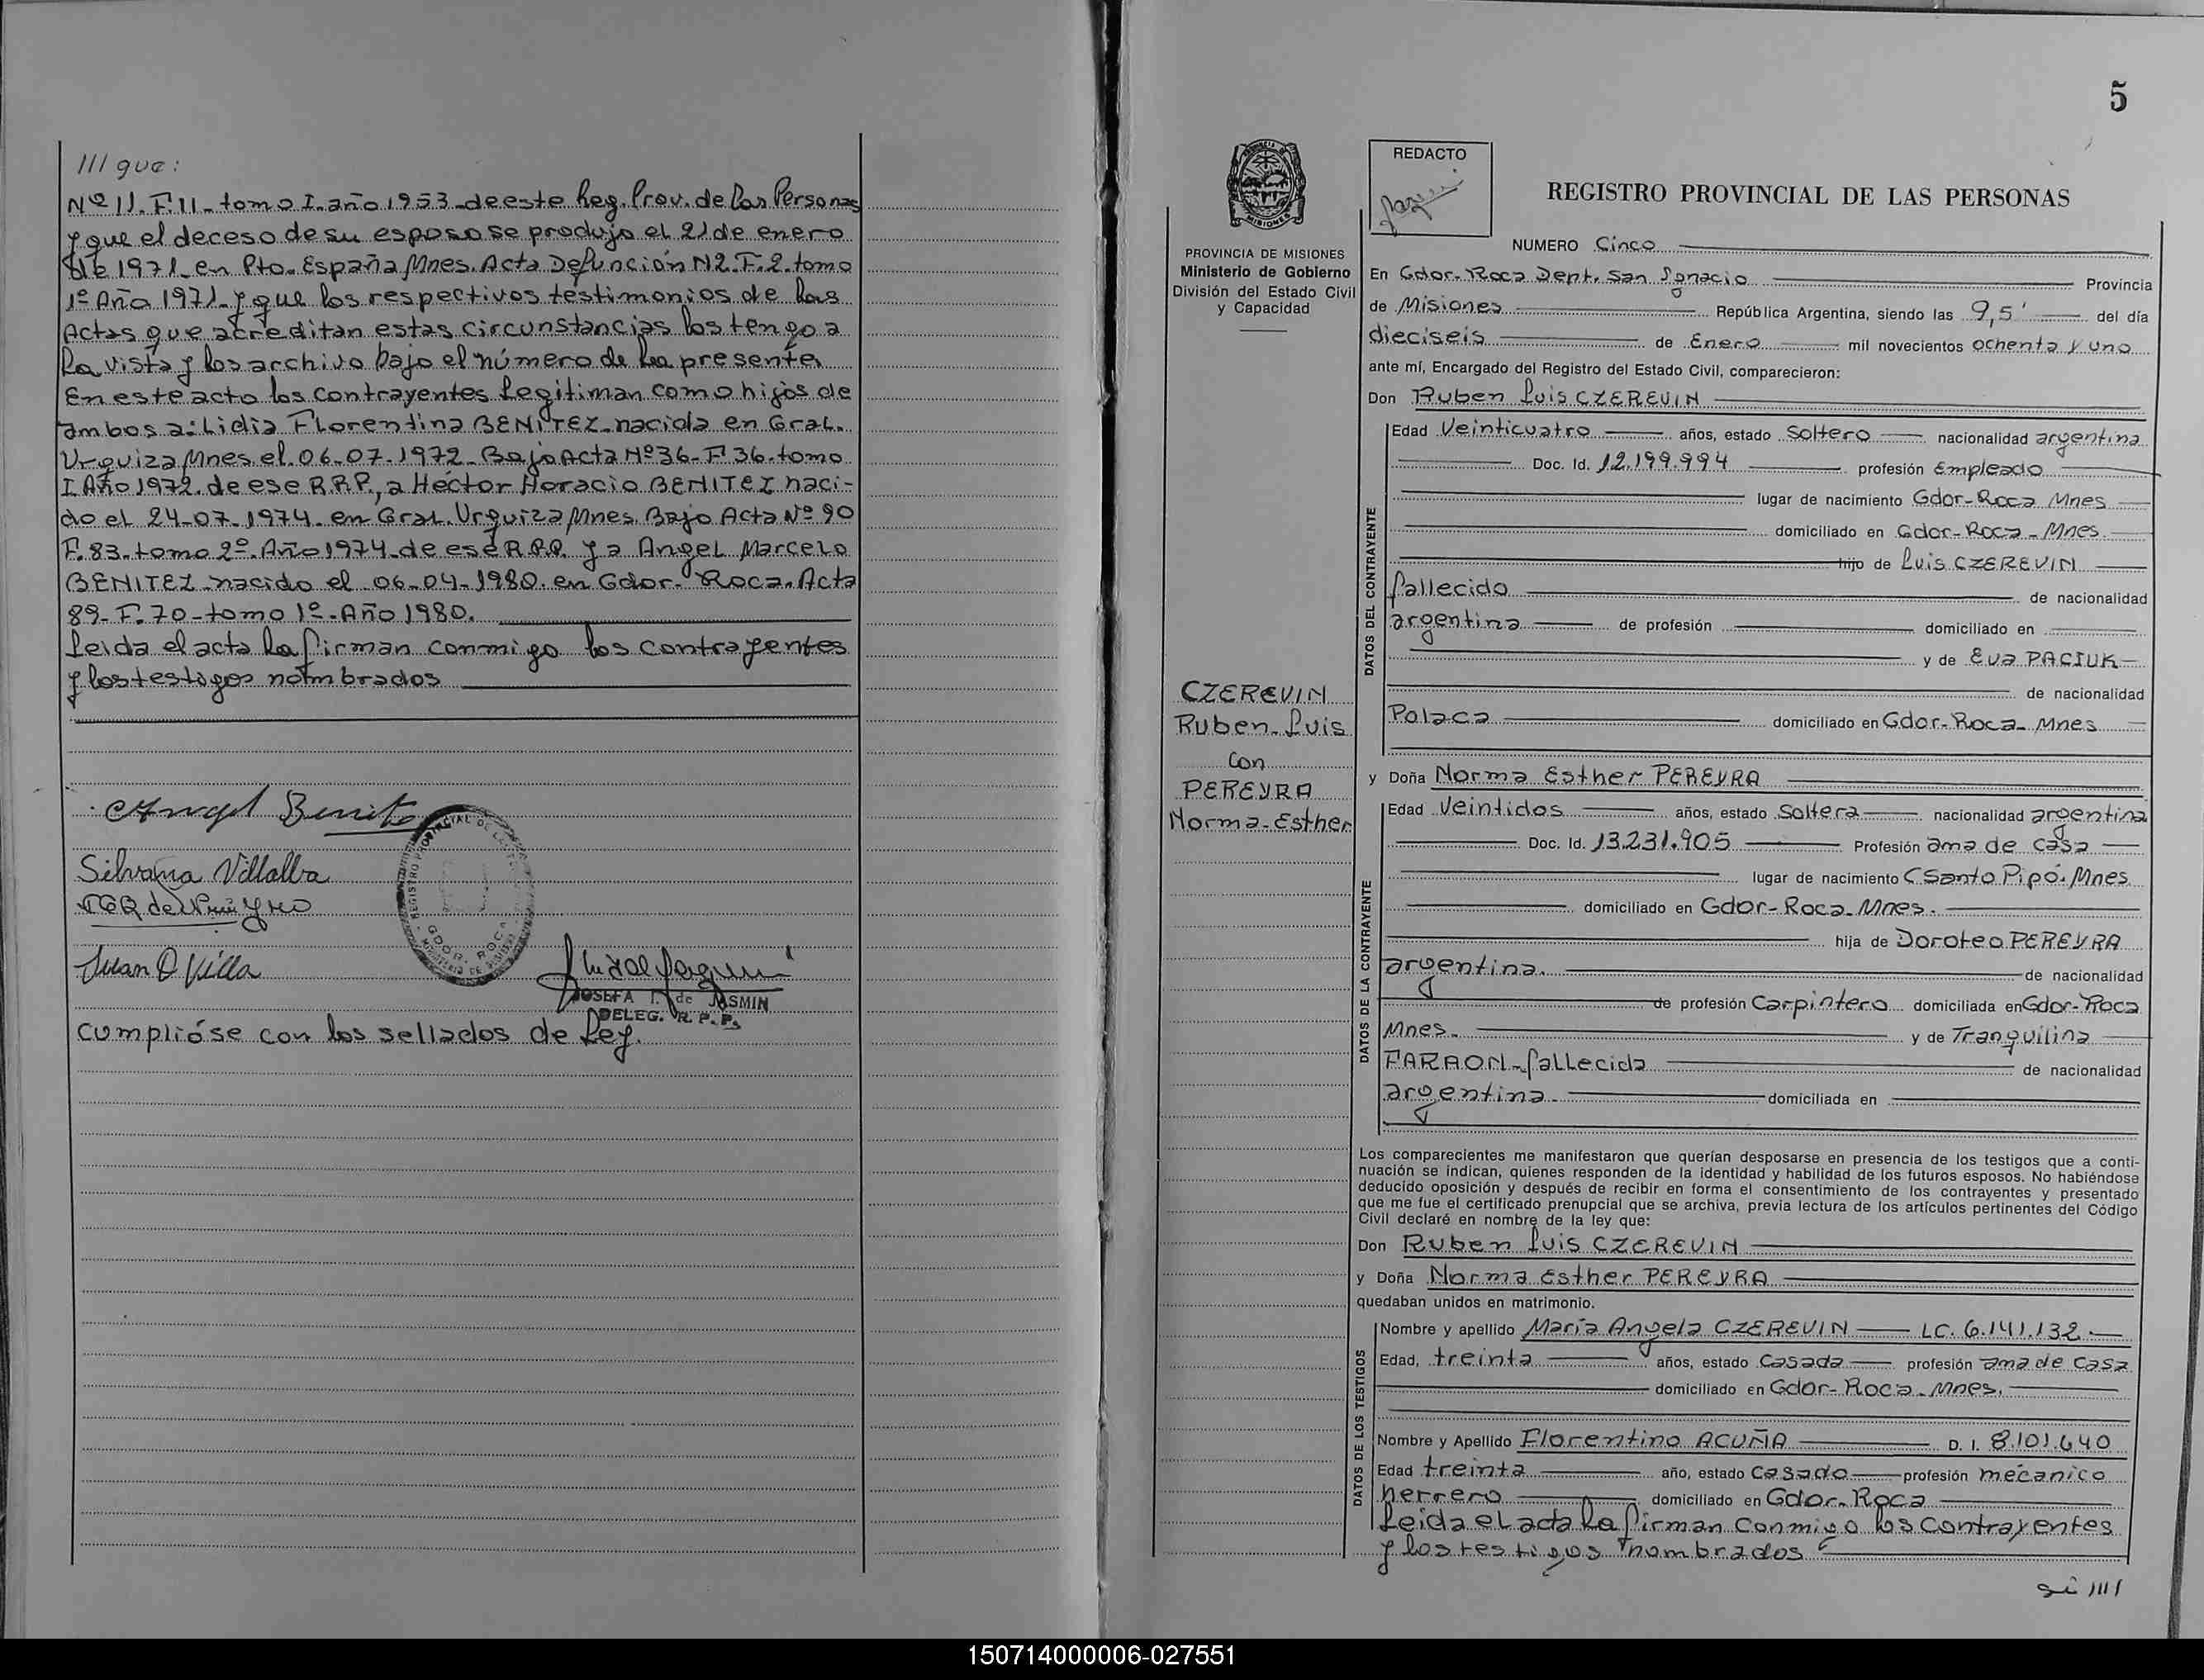 III que:
Nº 11. F. 11 - tomo I. año 1953 - de este Reg. Prov. de las Personas
y que el deceso de su esposo se produjo el 21 de enero
de 1971. en Pto. España Mnes. Acta Defunción N2. F. 2. tomo
1º Año 1971 - y que los respectivos testimonios de las
Actas que acreditan estas circunstancias los tengo a
la vista y los archivo bajo el número de la presente.
En este acto los contrayentes legitiman como hijos de
ambos a: Lidia Florentina BENITEZ - nacida en Gral.
Urquiza Mnes el. 06-07-1972 - Bajo Acta Nº 36 - Fº 36. tomo
I Año 1972. de ese R.P.P., a Héctor Horacio BENITEZ naci-
do el 24-07-1974. en Gral. Urquiza Mnes. Bajo Acta Nº 90
F. 83. tomo 2º. Año 1974 - de ese R.P.P. y a Angel Marcelo
BENITEZ - nacido el 06-04-1980. en Gdor. Roca. Acta
89 - F. 70 - tomo 1º - Año 1980.
Leida el acta la firman conmigo los contrayentes
y los testigos nombrados
Angel Benite
Silvana Villalba
Juan O Villa
REGISTRO PROVINCIAL DE
GDOR. ROCA
JOSEFA I. de JASMIN
DELEG. R. P. P.
cumplióse con los sellados de Ley.
5
PROVINCIA DE MISIONES
Ministerio de Gobierno
División del Estado Civil
y Capacidad
REDACTO
REGISTRO PROVINCIAL DE LAS PERSONAS
NUMERO Cinco
En Gdor. Roca Dept. San Ignacio Provincia
de Misiones República Argentina, siendo las 9,5' del día
dieciseis de Enero mil novecientos ochenta y uno
ante mí, Encargado del Registro del Estado Civil, comparecieron:
Don Ruben Luis CZEREVIN
DATOS DEL CONTRAYENTE
Edad Veinticuatro años, estado soltero nacionalidad argentina
Doc. Id. 12.199.994 profesión Empleado
lugar de nacimiento Gdor-Roca Mnes
domiciliado en Gdor-Roca-Mnes.
hijo de Luis CZEREVIN
fallecido de nacionalidad
argentina de profesión domiciliado en
y de Eva PACIUK
de nacionalidad
Polaca domiciliado en Gdor-Roca- Mnes
CZEREVIN
Ruben-Luis
Con
PEREYRA
Norma-Esther
y Doña Norma Esther PEREYRA
DATOS DE LA CONTRAYENTE
Edad Veintidos años, estado soltera nacionalidad argentina
Doc. Id. 13.231.905 Profesión ama de casa
lugar de nacimiento Santo Pipó. Mnes
domiciliado en Gdor-Roca-Mnes.
hija de Doroteo PEREYRA
argentina. de nacionalidad
de profesión Carpintero domiciliada en Gdor-Roca
Mnes. y de Tranquilina
FARAON-fallecida de nacionalidad
argentina domiciliada en
Los comparecientes me manifestaron que querían desposarse en presencia de los testigos que a conti-
nuación se indican, quienes responden de la identidad y habilidad de los futuros esposos. No habiéndose
deducido oposición y después de recibir en forma el consentimiento de los contrayentes y presentado
que me fue el certificado prenupcial que se archiva, previa lectura de los artículos pertinentes del Código
Civil declaré en nombre de la ley que:
Don Ruben Luis CZEREVIN
y Doña Norma Esther PEREYRA
quedaban unidos en matrimonio.
DATOS DE LOS TESTIGOS
Nombre y apellido María Angela CZEREVIN LC. 6.141.132
Edad, treinta años, estado Casada profesión ama de casa
domiciliado en Gdor-Roca-Mnes.
Nombre y Apellido Florentino ACUÑA D. I. 8.101.640
Edad treinta año, estado Casado profesión mecanico
herrero domiciliado en Gdor. Roca
Leida el acta la firman Conmigo los Contrayentes
y los testigos nombrados
150714000006-027551